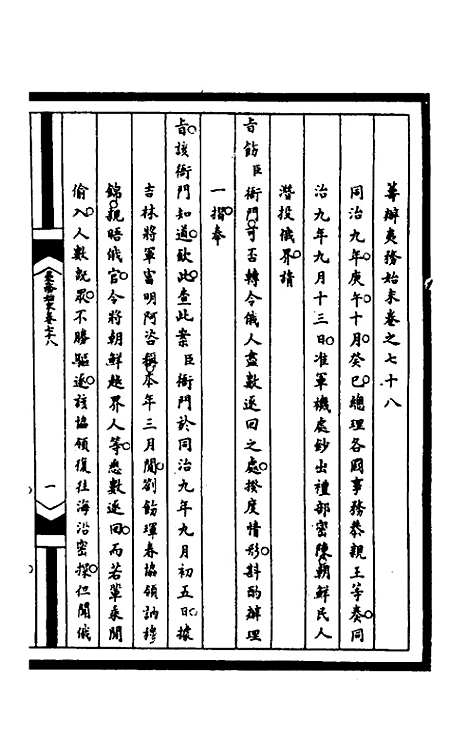 籌辦夷務始末卷之七十八
同治九年庚午十月癸巳總理各國事務恭親王等奏同
治九年九月十三日准軍機處鈔出禮部密陳朝鮮民人
潛投俄界請
旨飭臣衙門可否轉令俄人盡數逐回之處揆度情形斟酌辦理
一摺奉
旨該衙門知道欽此查此案臣衙門於同治九年九月初五日據
吉林將軍富明阿咨稱本年三月間劉飭琿春協領訥穆
錦親晤俄官令將朝鮮越界人等悉數逐回而若輩乘間
偷入人數既眾不勝驅逐該協領復往海沿密探但聞俄
夷務始末卷七十八
一